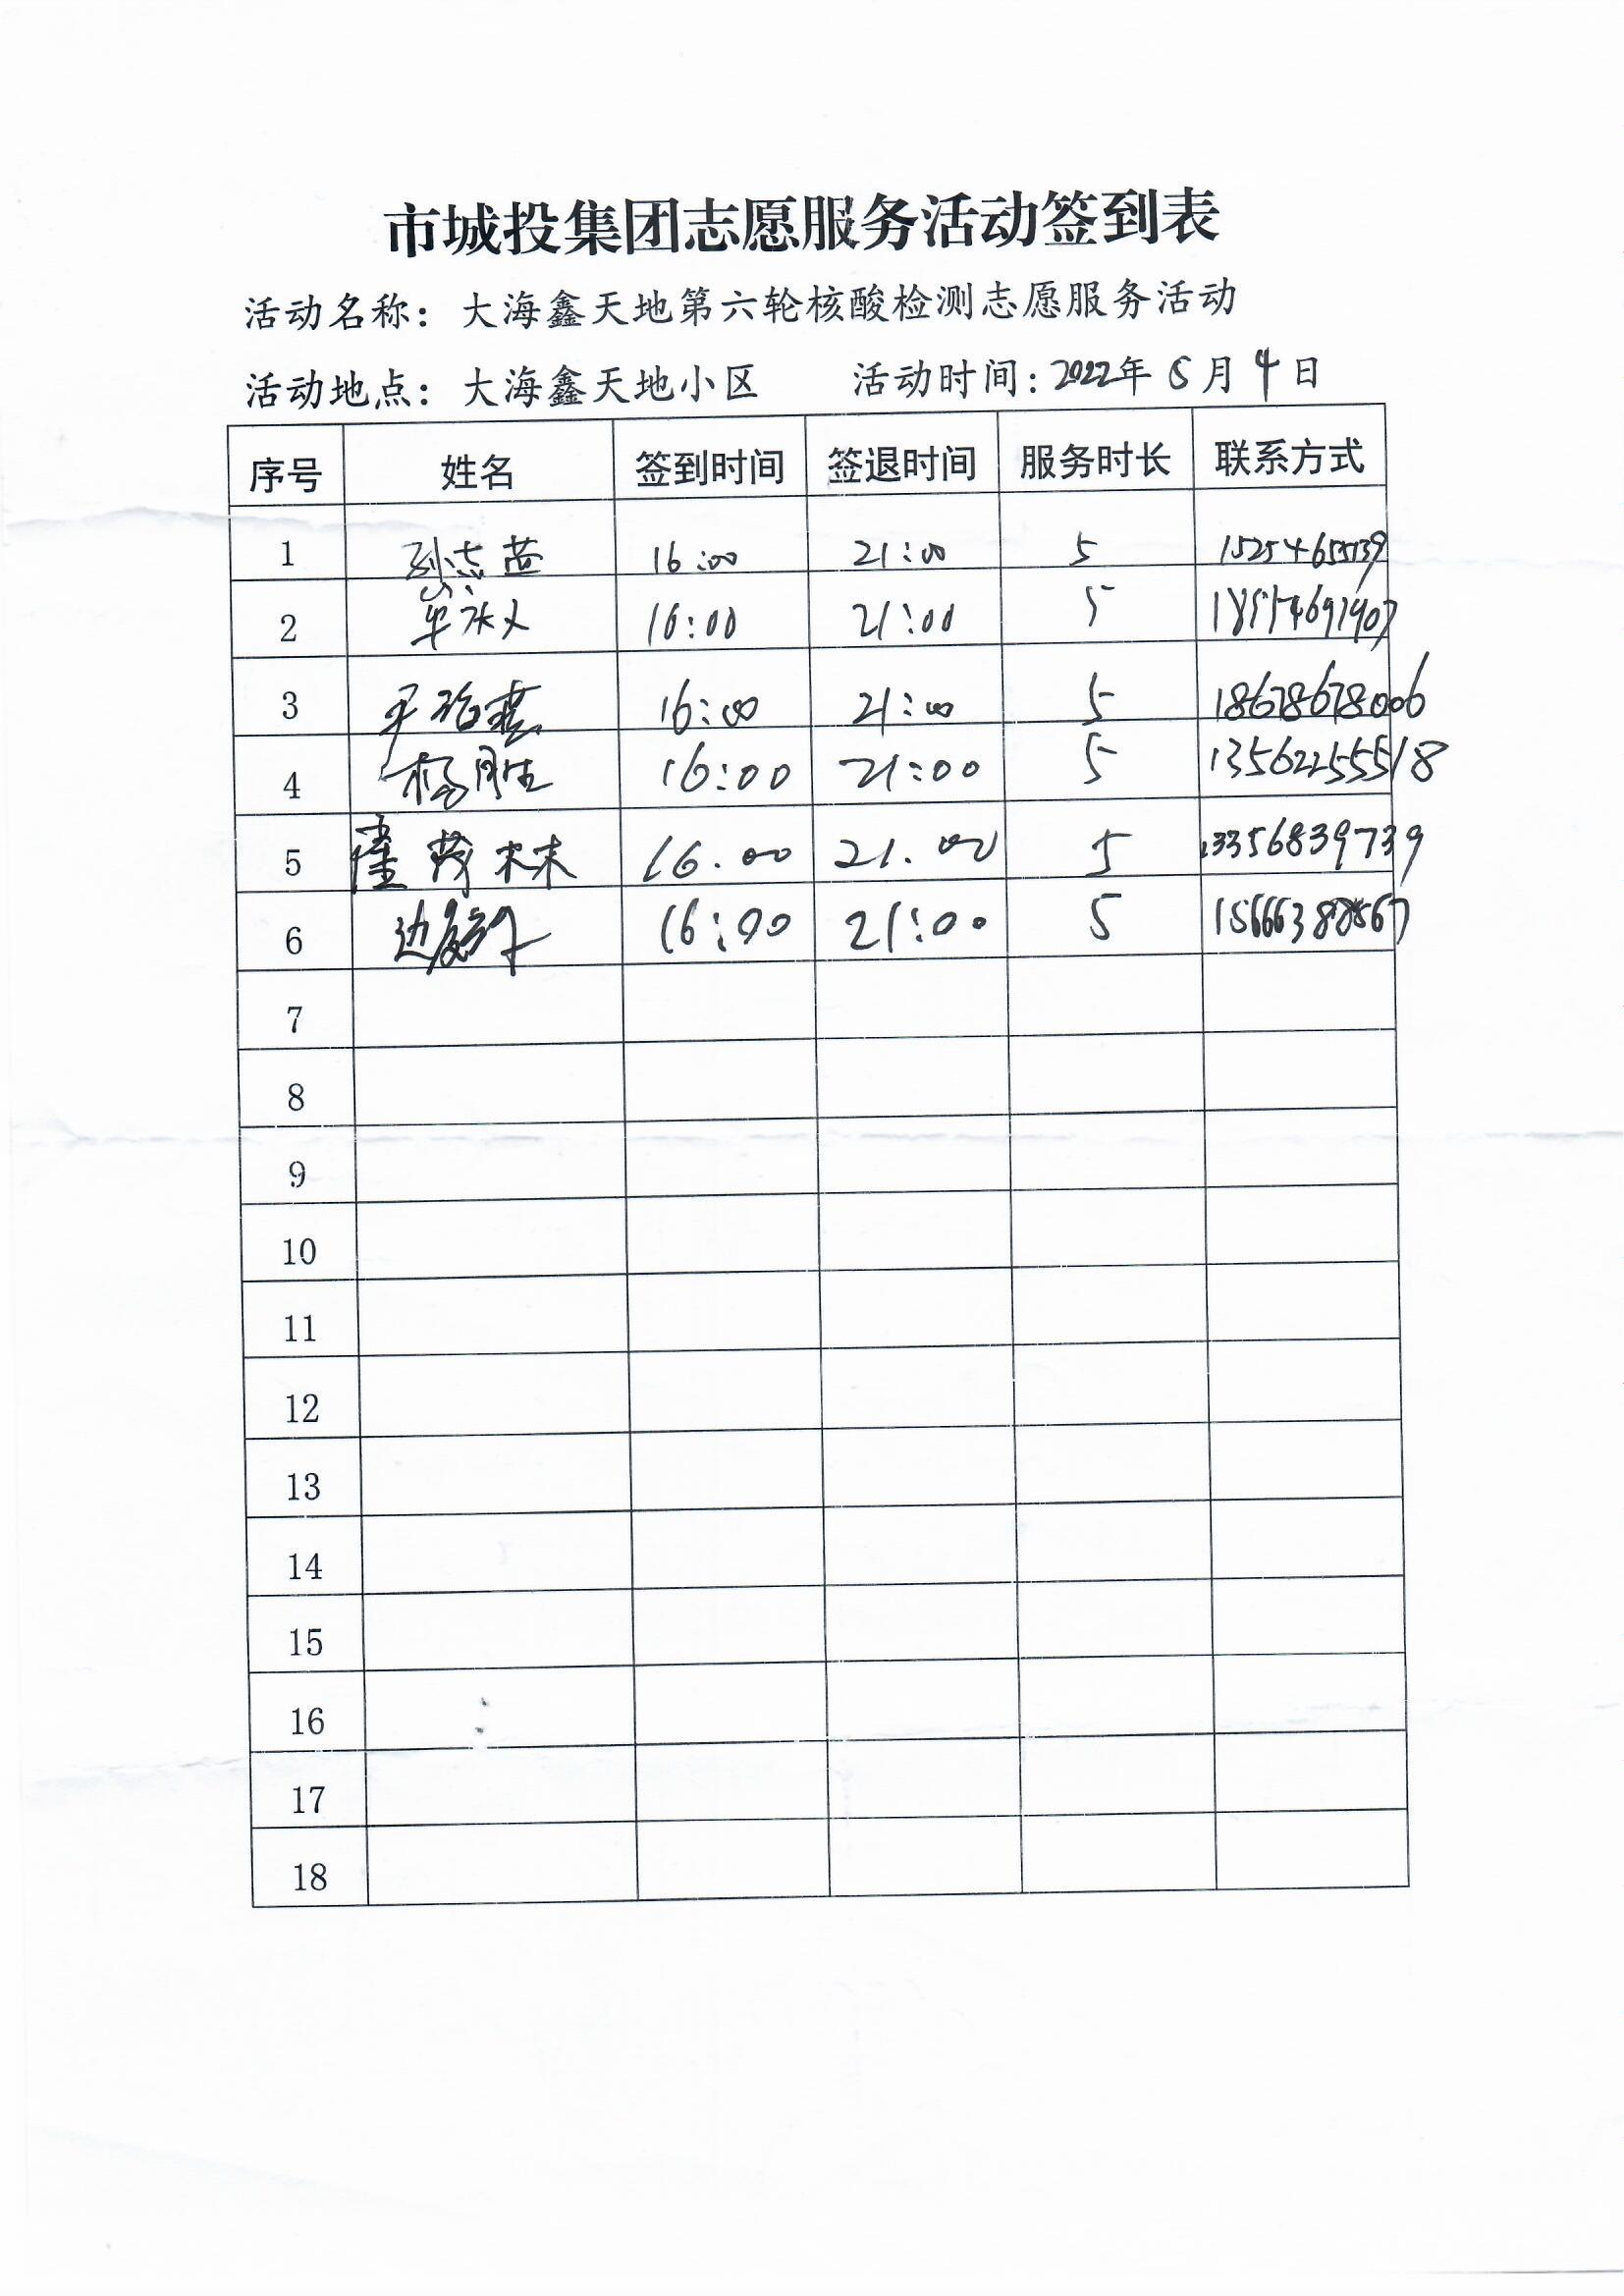 市城投集团志愿服务活动签到表
活动名称：大海鑫天地第六轮核酸检测志愿服务活动
活动地点：大海鑫天地小区 活动时间：2022年5月4日
序号 姓名 签到时间 签退时间 服务时长 联系方式
1 16:00 21:00 5 15254655139
2 16:00 21:00 5
3 16:00 21:00 5 18678678006
4 杨胜 16:00 21:00 5 13562255518
5 茂林 16.00 21.00 5 13356839739
6 16:00 21:00 5
7
8
9
10
11
12
13
14
15
16
17
18